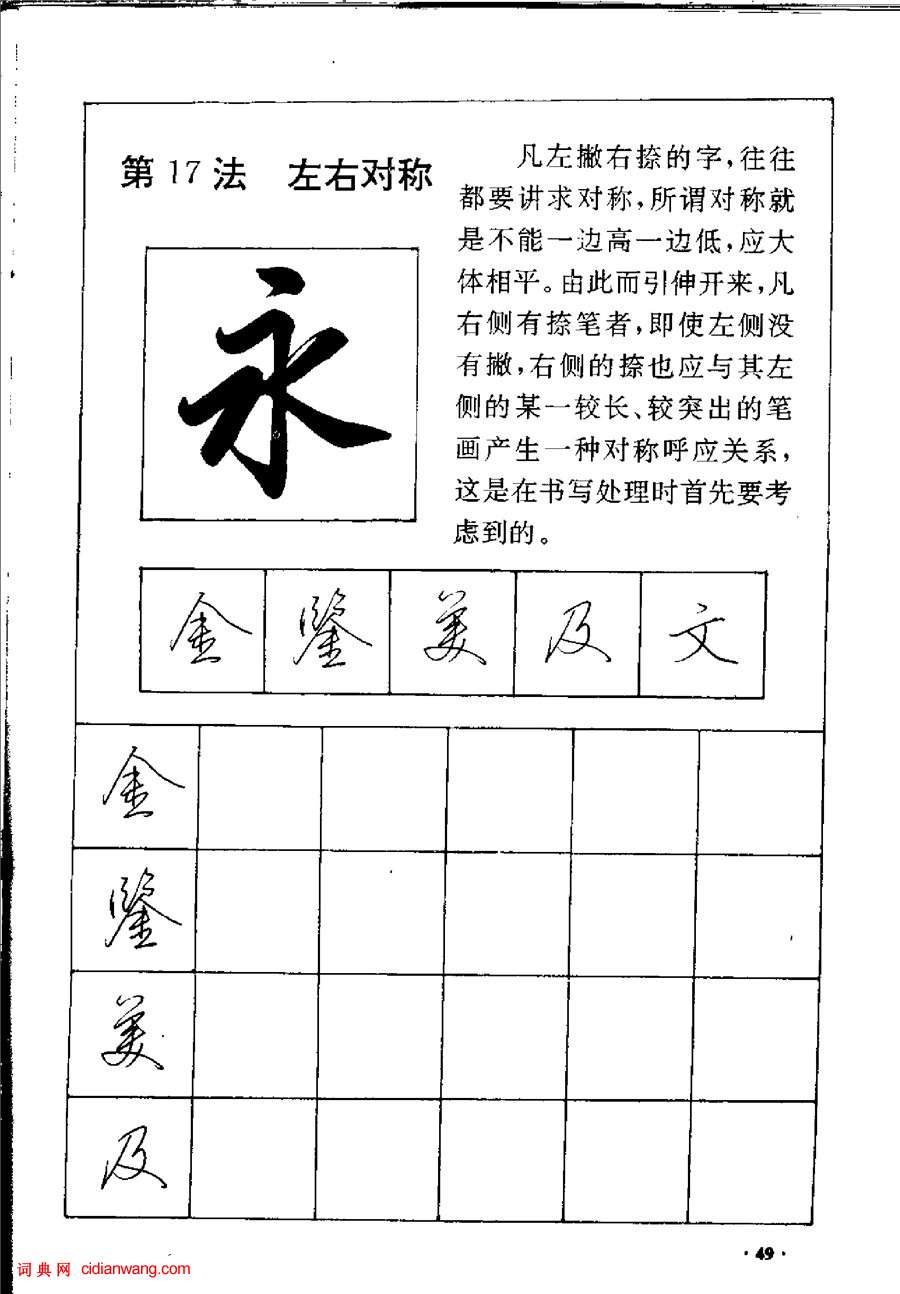 第17法 左右对称
凡左撇右捺的字,往往
都要讲求对称,所谓对称就
是不能一边高一边低,应大
体相平。由此而引伸开来,凡
右侧有捺笔者,即使左侧没
有撇,右侧的捺也应与其左
侧的某一较长、较突出的笔
画产生一种对称呼应关系,
这是在书写处理时首先要考
虑到的。
永
金 鉴 美 及 文
金
鉴
美
及
·49·
词典网 cidianwang.com